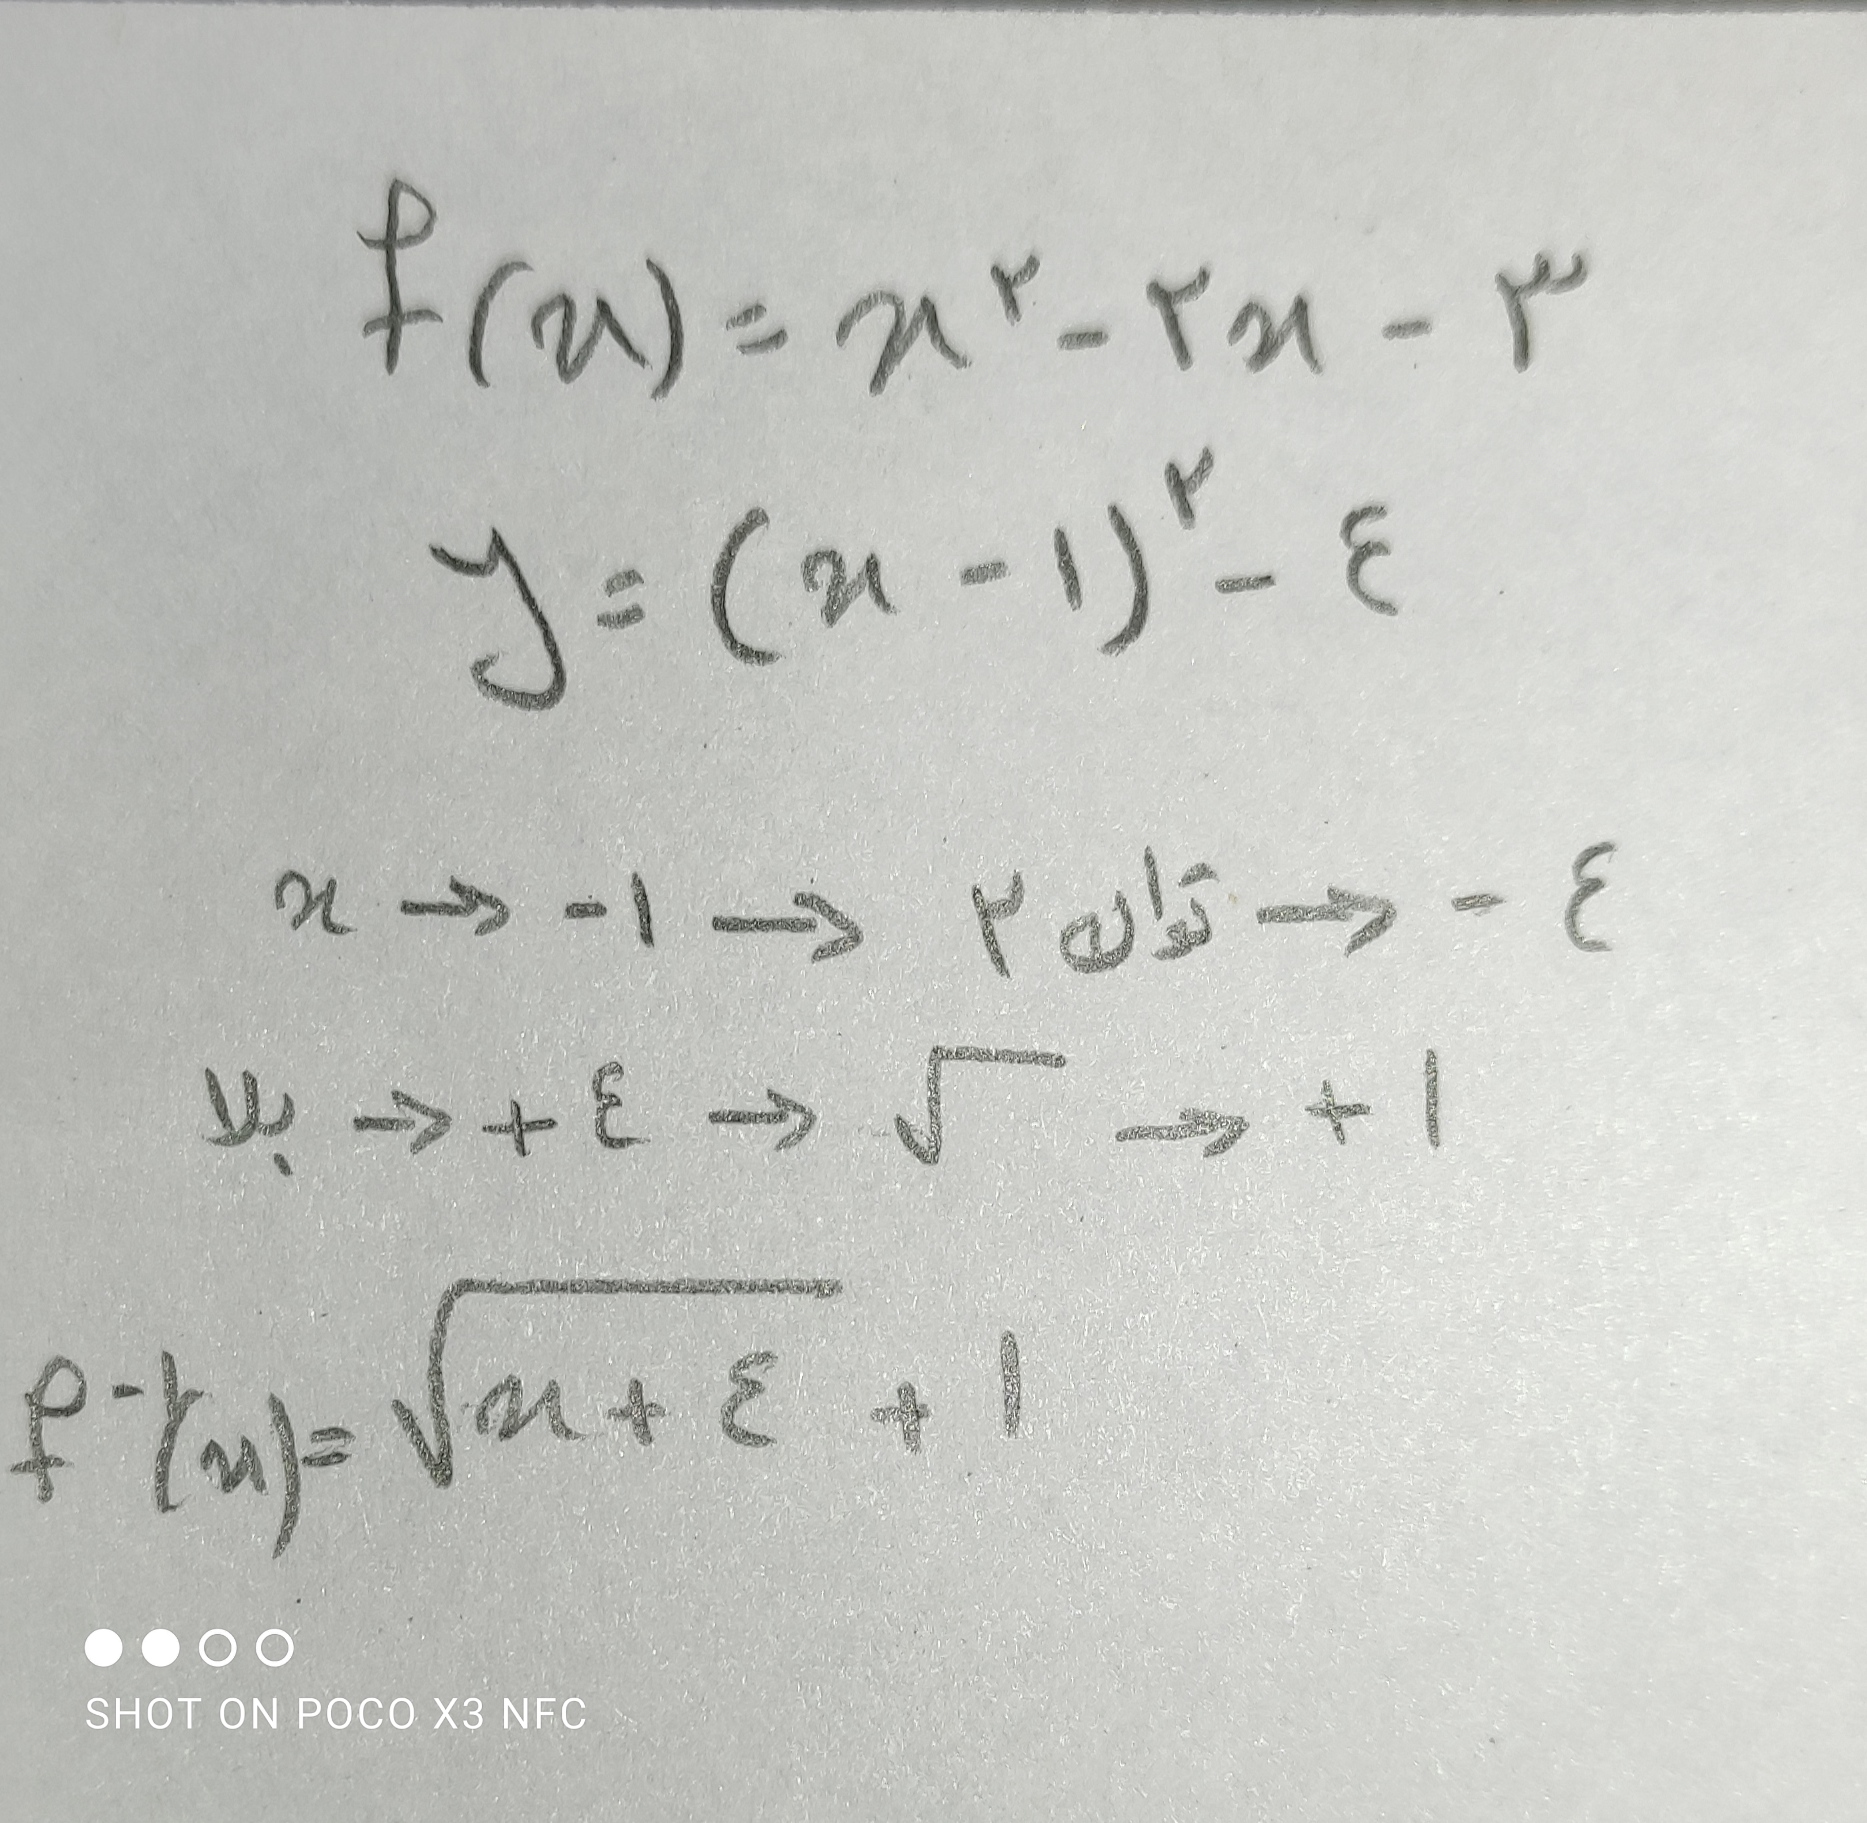 f(x) = x² - ۲x - ۳
y = (x - ۱)² - ٤
x → -۱ → توان ۲ → - ٤
بلا → + ٤ → √ → + ۱
f⁻¹(x) = √(x + ٤) + ۱
SHOT ON POCO X3 NFC